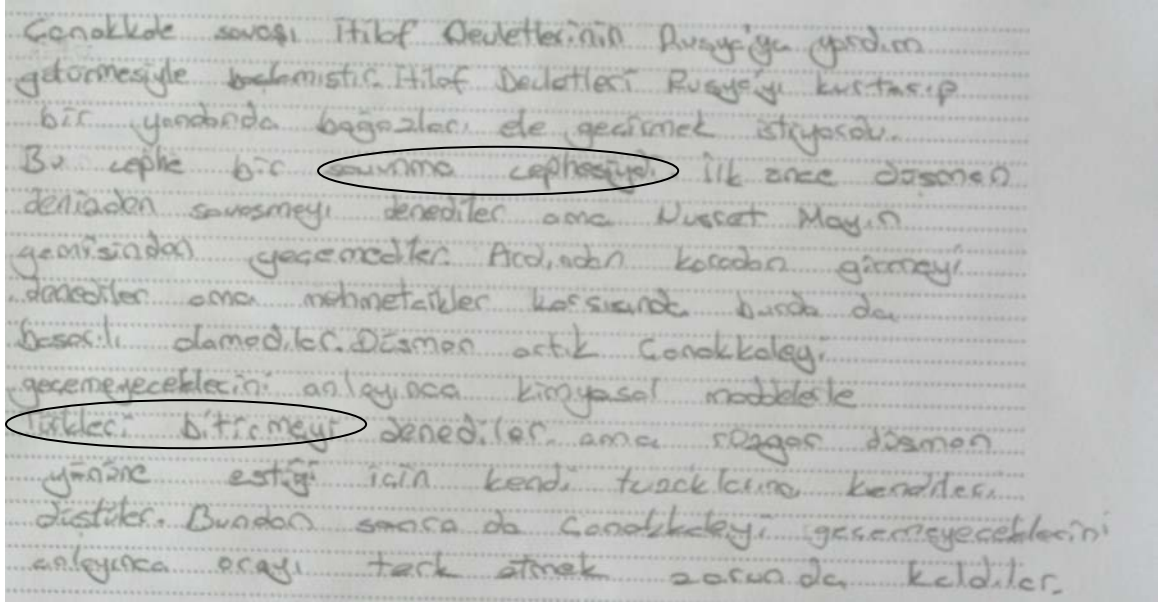 Çanakkale savaşı itilaf Devletlerinin Rusya'ya yardım
getirmesiyle başlamıştır. İtilaf Devletleri Rusya'yı kurtarıp
bir yandanda boğazları ele geçirmek istiyordu.
Bu cephe bir savunma cephesiydi ilk önce düşman
denizden savaşmayı denediler ama Nusret Mayın
gemisinden geçemediler. Ardından karadan girmeyi
denediler ama mehmetcikler karşısında burda da
başarılı olamadılar. Düşman artık Çanakkaleyi
geçemeyeceklerini anlayınca kimyasal maddelerle
Türkleri bitirmeyi denediler. ama rüzgar düşman
yönüne estiği için kendi tuzaklarına kendileri
düştüler. Bundan sonra da Çanakkaleyi geçemeyeceklerini
anlayınca orayı terk etmek zorunda kaldılar.